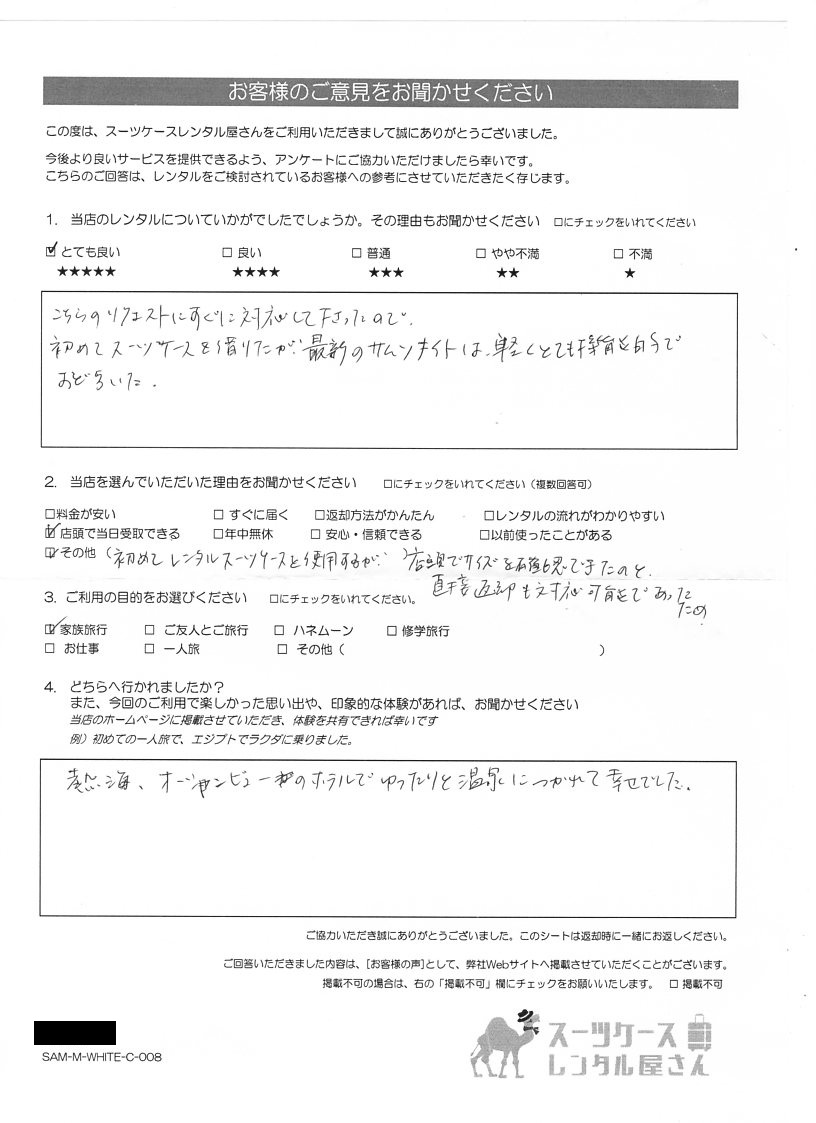 お客様のご意見をお聞かせください
この度は、スーツケースレンタル屋さんをご利用いただきまして誠にありがとうございました。
今後より良いサービスを提供できるよう、アンケートにご協力いただけましたら幸いです。
こちらのご回答は、レンタルをご検討されているお客様への参考にさせていただきたく存じます。
1. 当店のレンタルについていかがでしたでしょうか。その理由もお聞かせください □にチェックをいれてください
☑とても良い □ 良い □ 普通 □ やや不満 □ 不満
★★★★★ ★★★★ ★★★ ★★ ★
こちらのリクエストにすぐに対応して下さったので。
初めてスーツケースを借りたが、最新のサムソナイトは、軽くとても機能的で
おどろいた。
2. 当店を選んでいただいた理由をお聞かせください □にチェックをいれてください（複数回答可）
□料金が安い □ すぐに届く □返却方法がかんたん □レンタルの流れがわかりやすい
☑店頭で当日受取できる □年中無休 □ 安心・信頼できる □以前使ったことがある
☑その他（初めてレンタルスーツケースを使用するが、）店頭でサイズを確認できたのと、
直接返却も対応可能であった
ため
3. ご利用の目的をお選びください □にチェックをいれてください。
☑家族旅行 □ ご友人とご旅行 □ ハネムーン □ 修学旅行
□ お仕事 □ 一人旅 □ その他（ ）
4. どちらへ行かれましたか？
また、今回のご利用で楽しかった思い出や、印象的な体験があれば、お聞かせください
当店のホームページに掲載させていただき、体験を共有できれば幸いです
例）初めての一人旅で、エジプトでラクダに乗りました。
熱海、オーシャンビューのホテルでゆったりと温泉につかれて幸せでした。
ご協力いただき誠にありがとうございました。このシートは返却時に一緒にお返しください。
ご回答いただきました内容は、[お客様の声]として、弊社Webサイトへ掲載させていただくことがございます。
掲載不可の場合は、右の「掲載不可」欄にチェックをお願いいたします。 □ 掲載不可
SAM-M-WHITE-C-008
スーツケース
レンタル屋さん